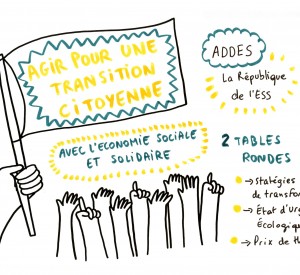 AGIR POUR UNE
TRANSITION
CITOYENNE
AVEC L'ECONOMIE SOCIALE
ET SOLIDAIRE
ADDES
La République
de l'ESS
2 TABLES
RONDES
→ Statégies
de transfor
→ État d'Urg
Écologiqu
→ Prix de th